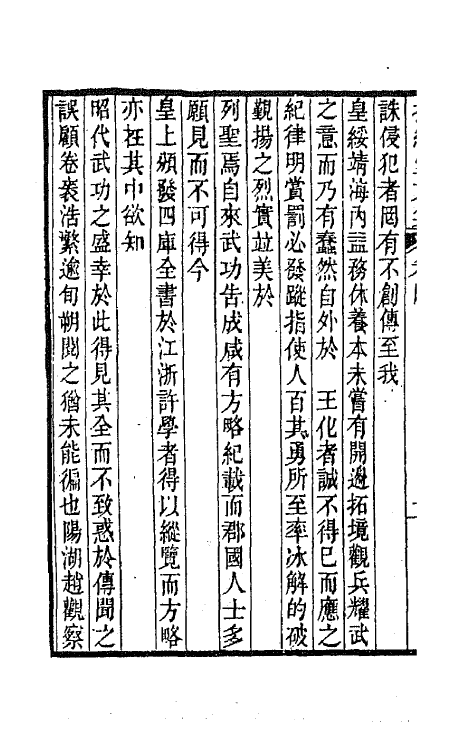 誅侵犯者罔有不創傳至我
皇綏靖海內益務休養本未嘗有開邊拓境觀兵耀武
之意而乃有蠢然自外於　王化者誠不得已而應之
紀律明賞罰必發蹤指使人百其勇所至率冰解的破
覲揚之烈實竝美於
列聖焉自來武功告成咸有方略紀載而郡國人士多
願見而不可得今
皇上頒發四庫全書於江浙許學者得以縱覽而方略
亦在其中欲知
昭代武功之盛幸於此得見其全而不致惑於傳聞之
誤顧卷袠浩繁逾旬朔閱之猶未能徧也陽湖趙觀察